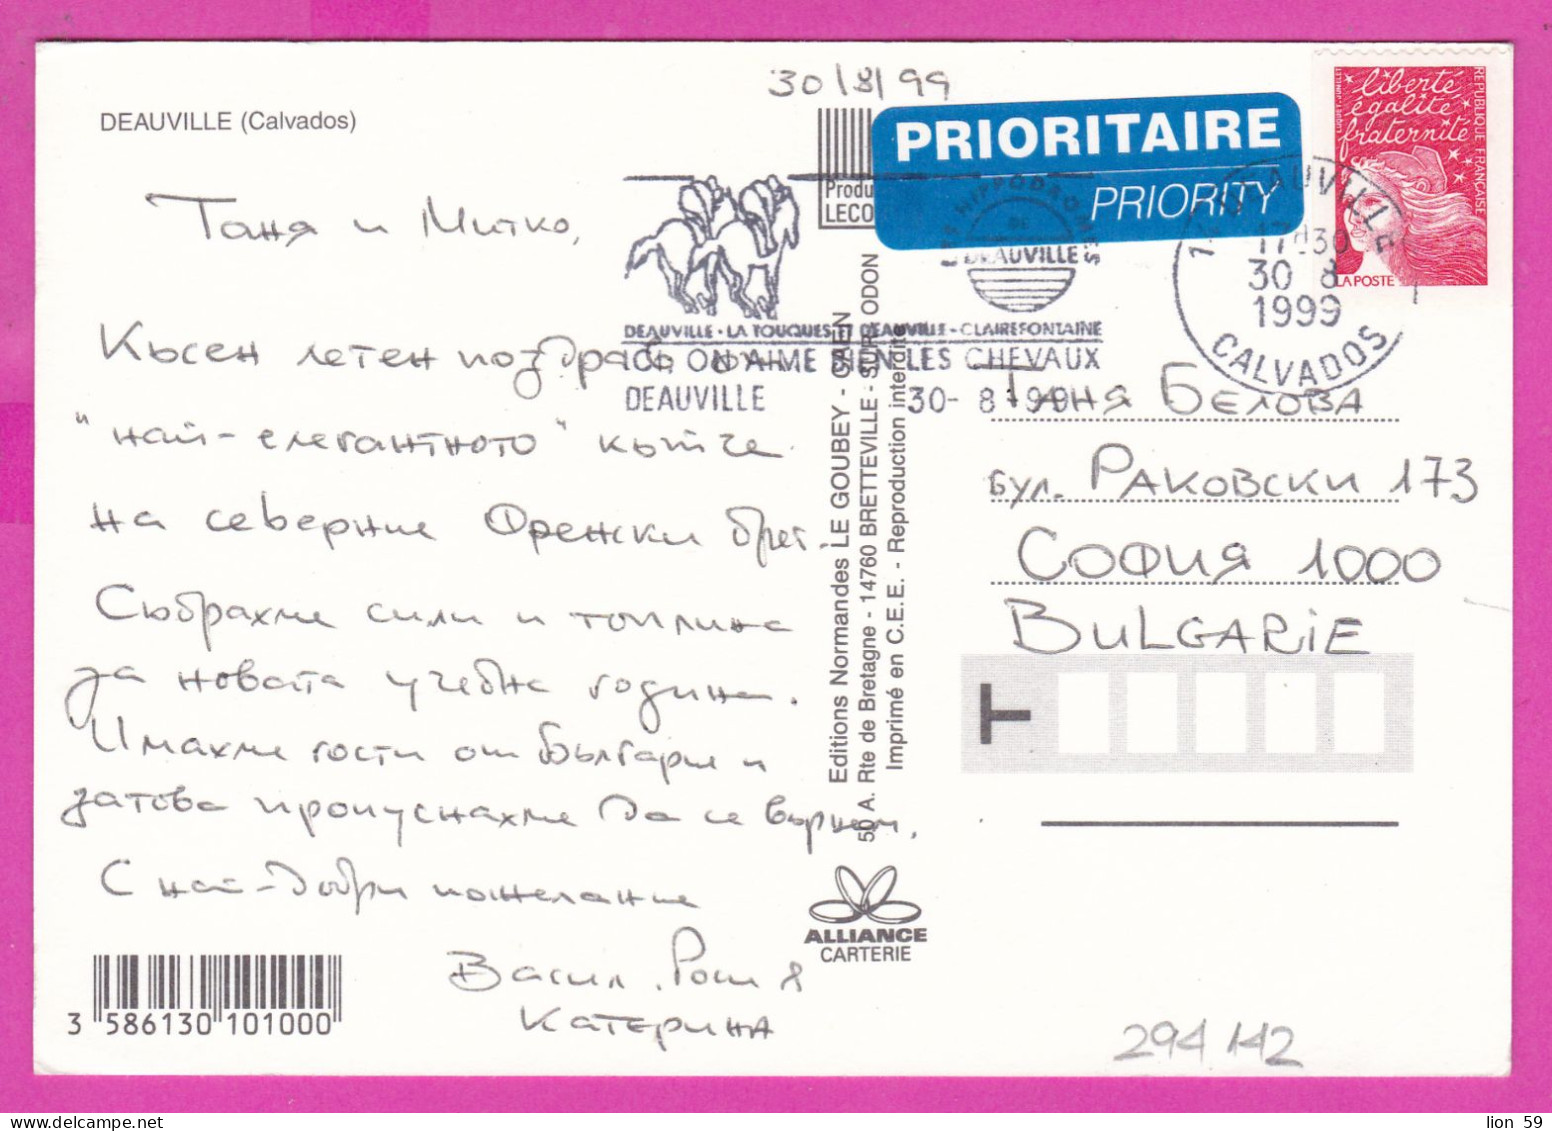 30/8/99
DEAUVILLE (Calvados)
PRIORITAIRE
PRIORITY
liberté
égalité
fraternité
REPUBLIQUE FRANÇAISE
LA POSTE
LUQUET-JUMELET
Produ
LECO
LES HIPPODROMES
DE
DEAUVILLE
DEAUVILLE - LA TOUQUES ET DEAUVILLE - CLAIREFONTAINE
ICI ON AIME BIEN LES CHEVAUX
DEAUVILLE 30- 8-99
DEAUVILLE
17H30
30 8
1999
CALVADOS
Таня и Митко,
Късен летен поздрав от
"най-елегантното" кътче
на северния Френски бряг.
Събрахме сили и топлина
за новата учебна година.
Имахме гости от България и
затова пропуснахме да се върнем.
С най-добри пожелания
Васил, Роси &
Катерина
Таня Белова
бул. Раковски 173
София 1000
BULGARIE
T
Editions Normandes LE GOUBEY - CAEN
50 A. Rte de Bretagne - 14760 BRETTEVILLE - SUR - ODON
Imprimé en C.E.E. - Reproduction interdite
ALLIANCE
CARTERIE
3 586130 101000
294142
lion 59